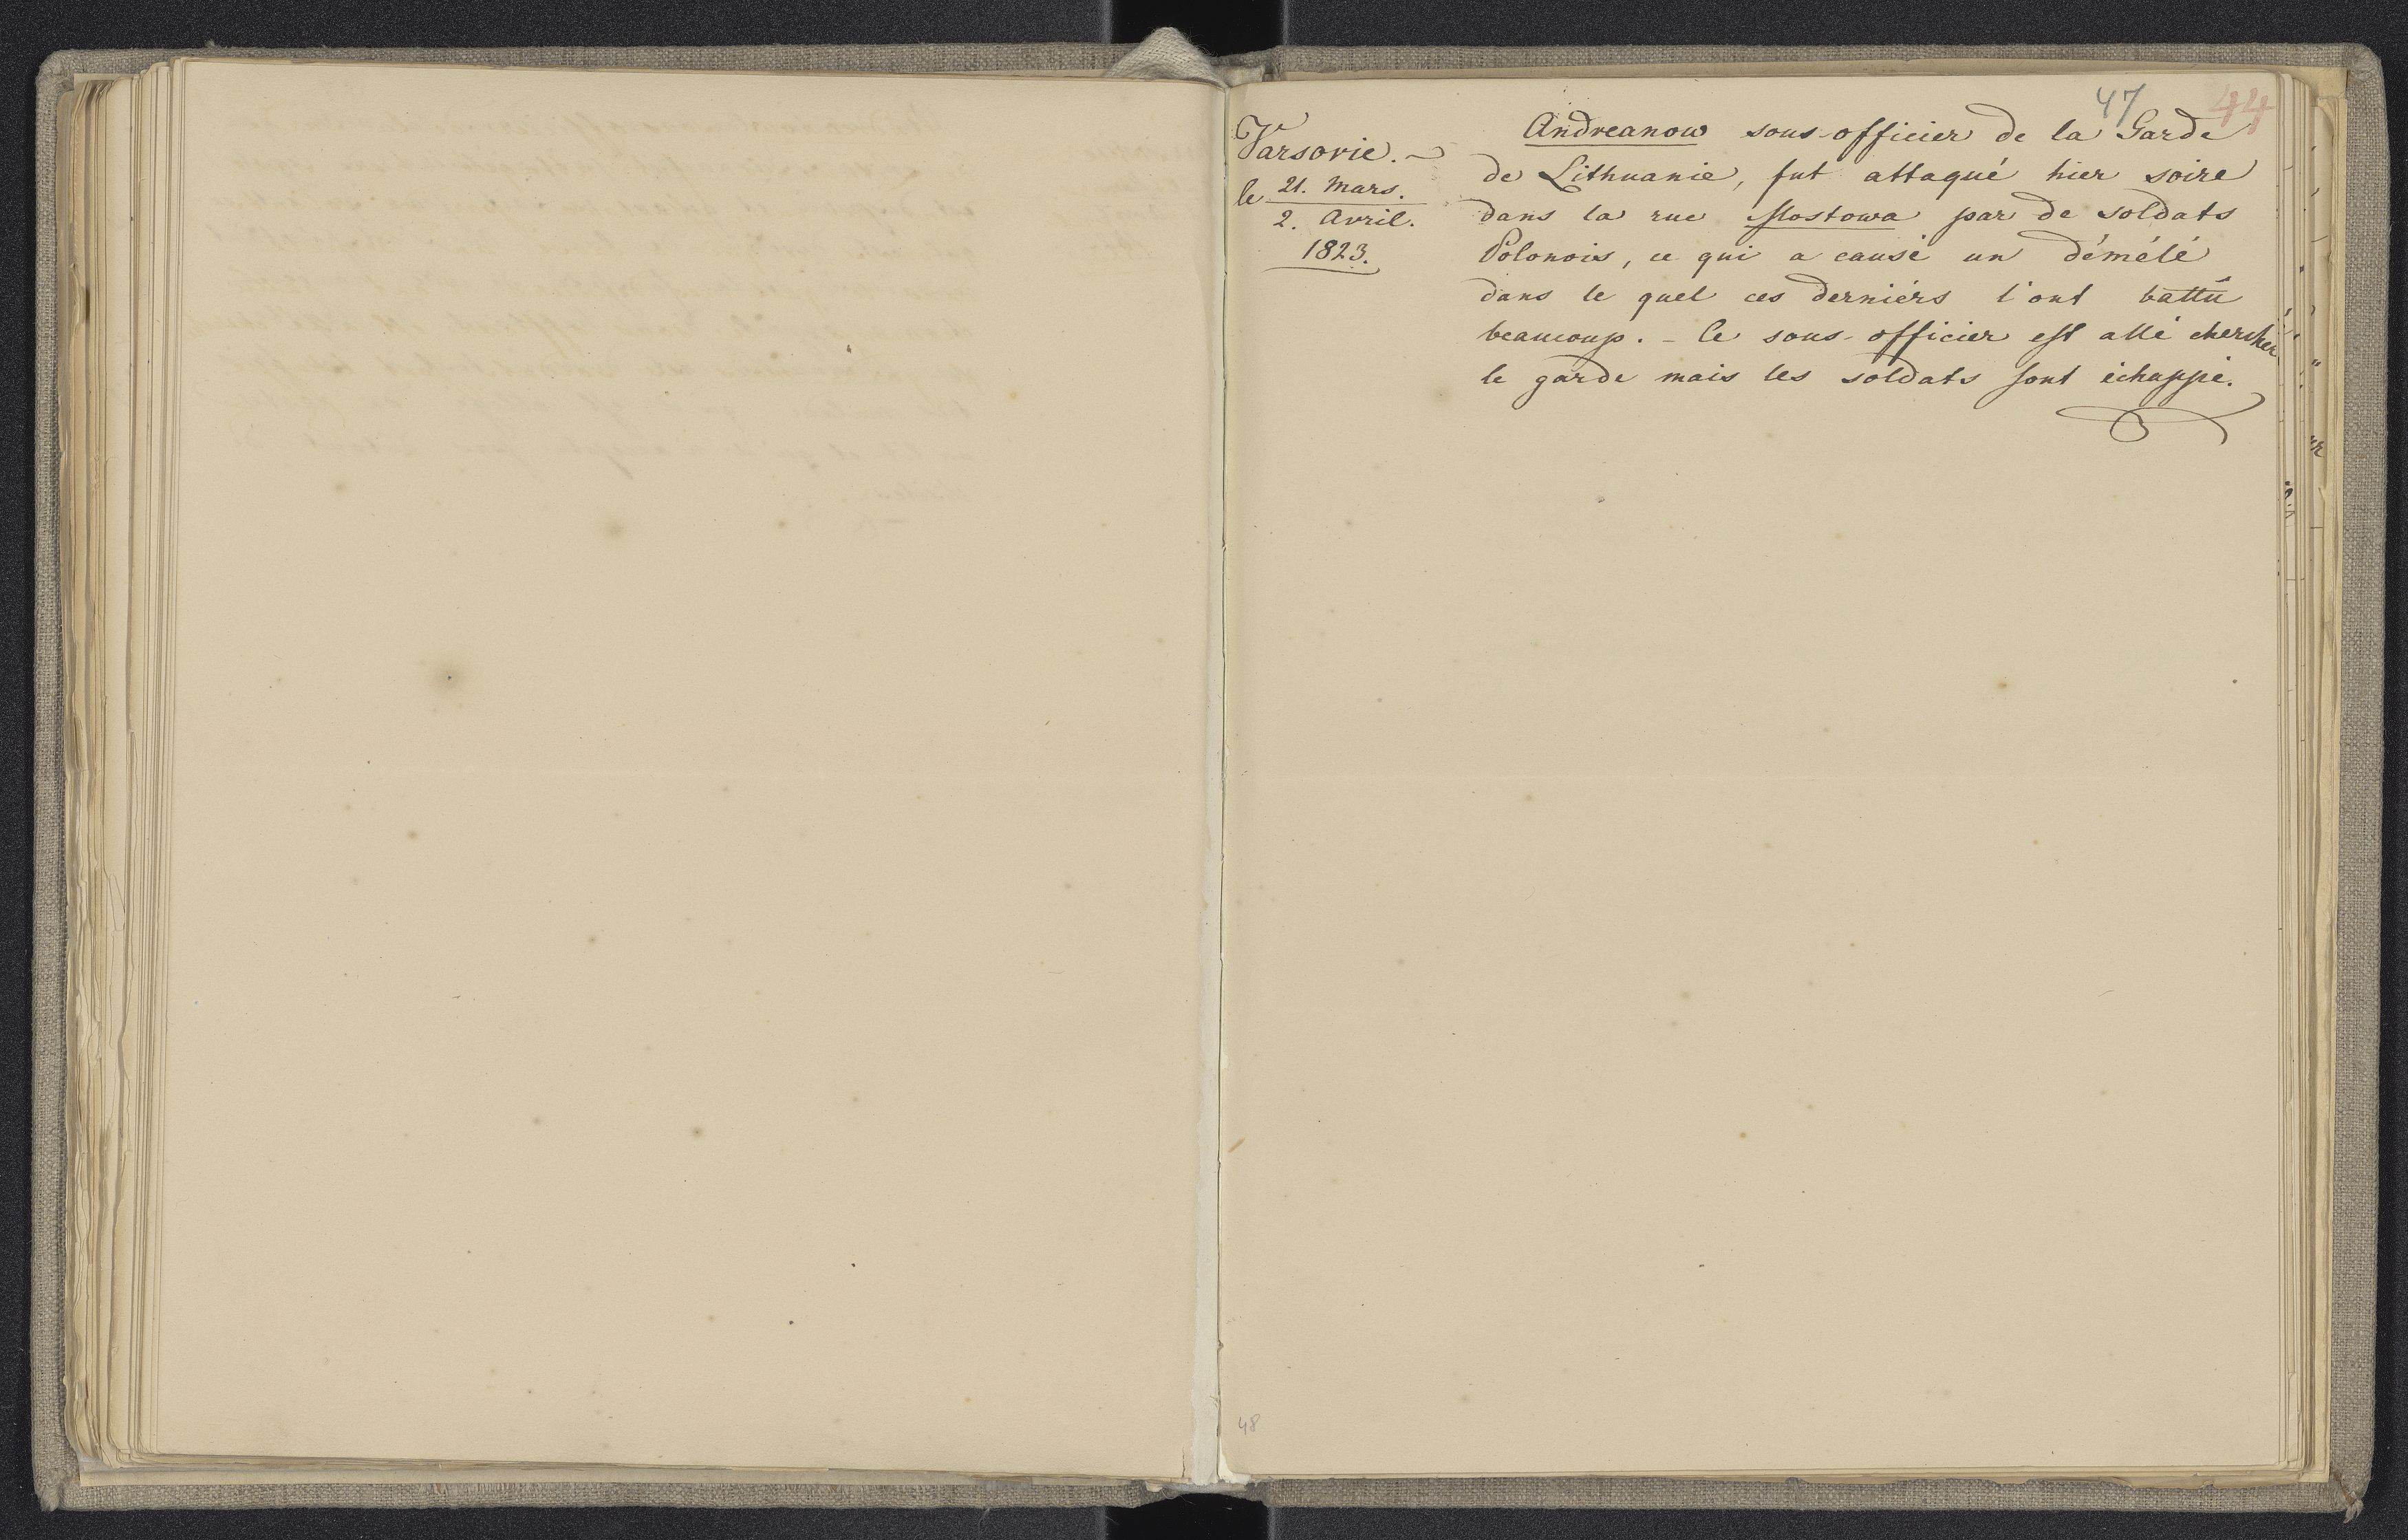 47 44
Varsovie. ~
le 21. Mars.
2. Avril.
1823.
Andreanow sous-officier de la Garde
de Lithuanie, fut attaqué hier soire
dans la rue Mostowa par de soldats
Polonois, ce qui a causé un démélé
dans le quel ces derniérs l'ont battû
beaucoup. - Ce sous-officier est allé chercher
le garde mais les soldats sont échappé.
48